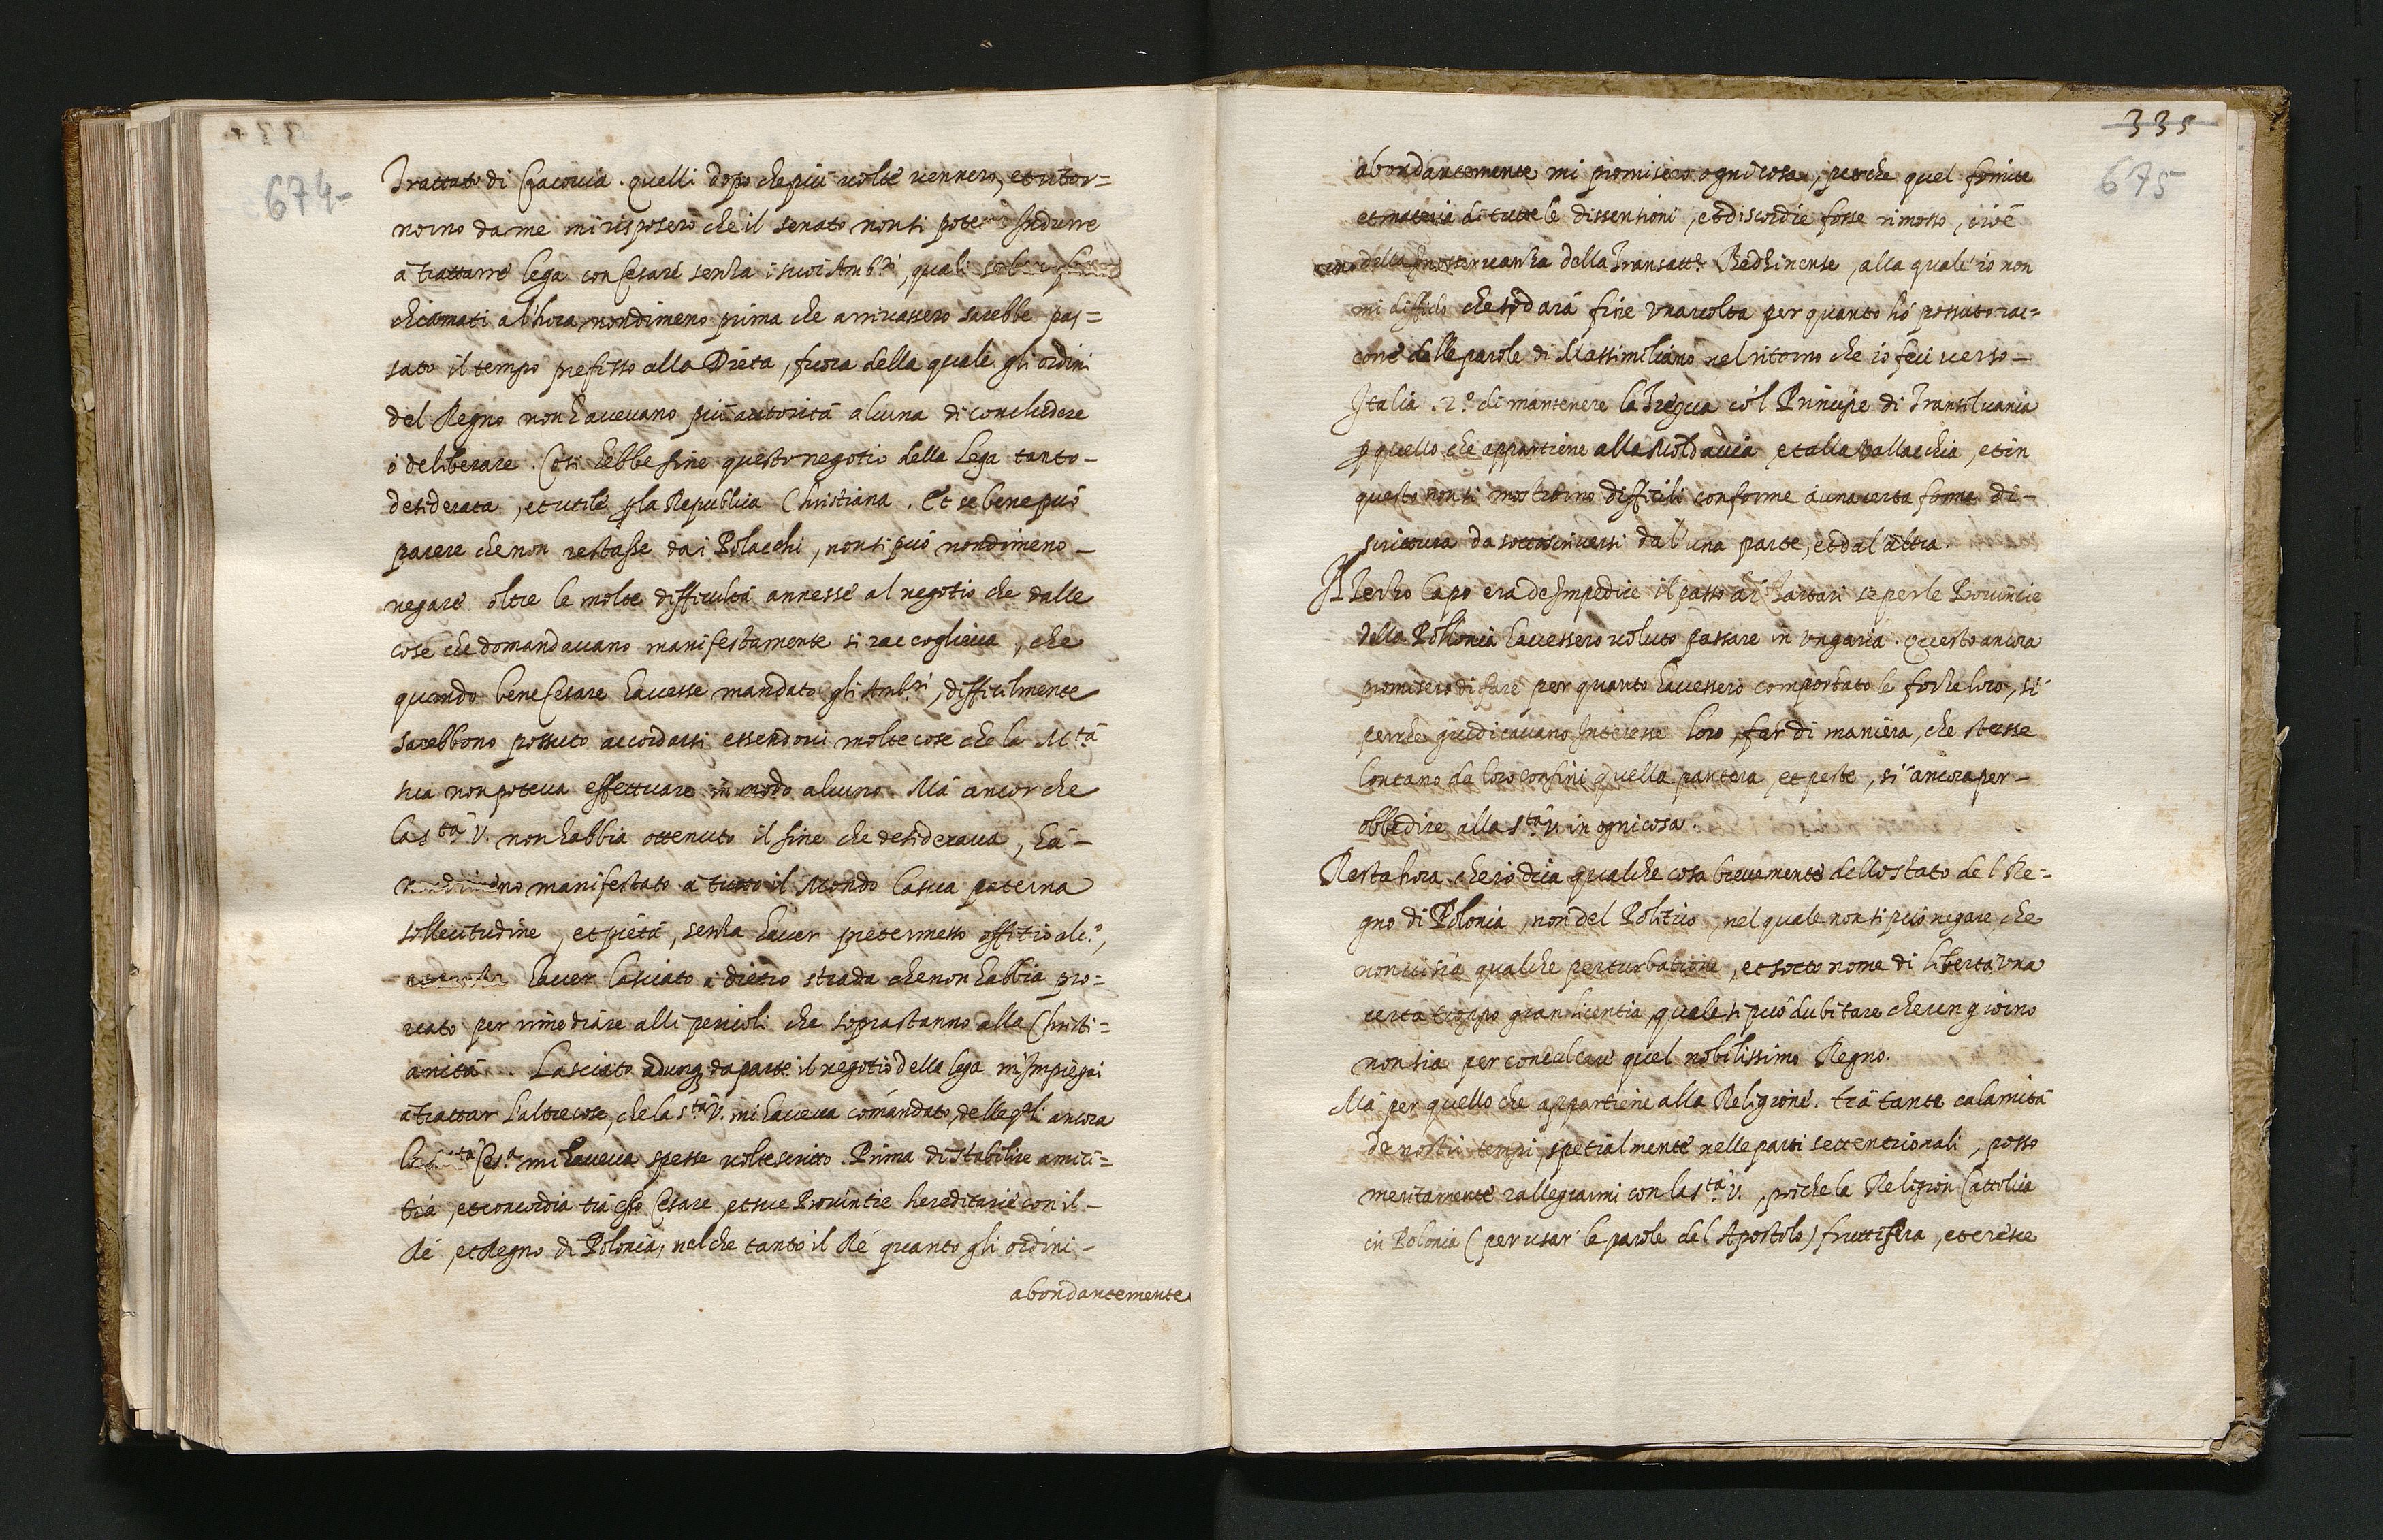 674
Trattato di Cracovia. quelli dopo che più uolte uennero, et ritor=
norno da me mi risposero che il senato non si poteua Indurre
à trattare lega con Cesare senza i suoi Amb.ri, quali
chiamati al'hora nondimeno prima che arriuassero sarebbe pas=
sato il tempo prefisso alla Dieta, fuora della quale gli ordini
del Regno non haueuano più autorità alcuna di concludere
ò deliberare. Così hebbe fine questo negotio della Lega tanto-
desiderata, et utile p la Republica Christiana. Et se bene può
parere che non restasse da i Polacchi, non si può nondimeno-
negare oltre le molte difficultà annesse al negotio che dalle
cose che domandauano manifestamente si raccoglieua, che
quando bene Cesare hauesse mandato gli Amb.ri, difficilmente
sarebbono possuto accordarsi essendoui molte cose che la M.tà
sua non poteua effettuare in modo alcuno. Mà ancor che
la S.tà V. non habbia ottenuto il fine che desideraua, hà-
nondimeno manifestato à tutto il Mondo la sua paterna
sollecitudine, et pietà, senza hauer pretermesso offitio alc.o,
hauer lasciato à dietro strada che non habbia pro=
uato per rimediare alli pericoli che soprastanno alla Christi=
anità. Lasciato adunq da parte il negotio della lega m'Impiegai
à trattar l'altre cose, che la S.tà V. mi haueua comandato, delle q.li ancora
la M.tà Ces.a mi haueua spesse uolte scritto. Prima di stabilire amici=
tia, et concordia trà esso Cesare, et sue Prouintie hereditarie con il-
Rè, et Regno di Polonia, nel che tanto il Rè quanto gli ordini-
abondantemente
335
675
abondantemente mi promisero ogni cosa, perche quel fomite
et materia di tutte le dissentioni, et discordie fosse rimosso, cioè
della Inosseruanza della Transatt.e Bedzinense, alla quale io non
mi diffido che si darà fine una uolta per quanto hò possuto rac=
corre dalle parole di Massimiliano nel ritorno che io feci uerso-
Italia. 2.o di mantenere la Tregua co'l Principe di Transiluania
p quello che appartiene alla Moldauia et alla Vallacchia, et in
questo non si mostrorno difficili conforme à una certa forma di-
scrittura da sottoscriuersi dal'una parte, et dal'altra.
Il Terzo Capo era de Impedire il passo ai Tartari se per le Prouincie
della Pollonia hauessero uoluto passare in Vngaria. Questo ancora
promisero di fare per quanto hauessero comportato le forze loro, sì
perche giudicauano Interesse loro, far di maniera, che stesse
lontano da loro confini quella pantera, et peste, sì ancora per-
obbedire alla S.tà V. in ogni cosa.
Resta hora che io dica qualche cosa breuemente dello stato del Re=
gno di Polonia, non del Politico, nel quale non si può negare, che
non ui sia qualche perturbatione, et sotto nome di libertà una
certa troppo gran licentia, quale si può dubitare che un giorno
non sia per conculcare quel nobilissimo Regno.
Mà per quello che appartiene alla Religione. trà tante calamità
de nostri tempi, spetialmente nelle parti settentrionali, posso
meritamente rallegrarmi con la S.tà V., poiche la Religion Cattolica
in Polonia (per usar le parole del Apostolo) fruttifica, et cresce